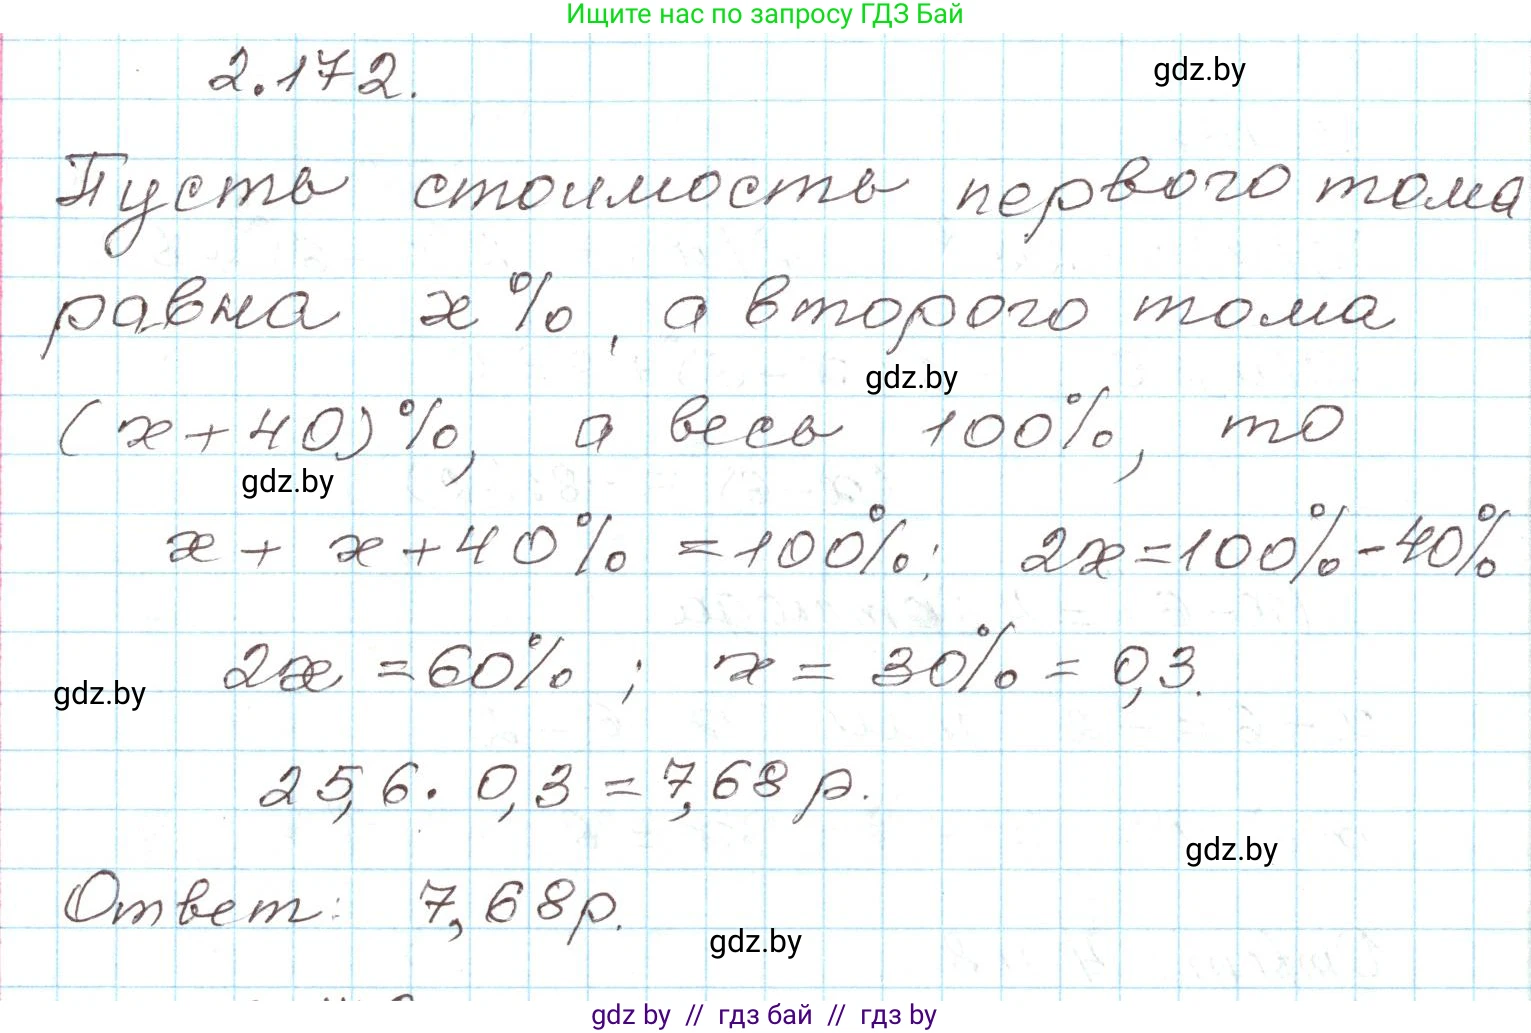 Ищите нас по запросу ГДЗ Бай
2.172.
gdz.by
Пусть стоимость первого тома
равна x%, а второго тома
gdz.by
(x+40)%, а весь 100%, то
gdz.by
x + x + 40% = 100%; 2x = 100% - 40%
2x = 60% ; x = 30% = 0,3.
gdz.by
25,6 · 0,3 = 7,68 р.
gdz.by
Ответ: 7,68 р.
gdz.by
gdz by // гдз бай // гдз by